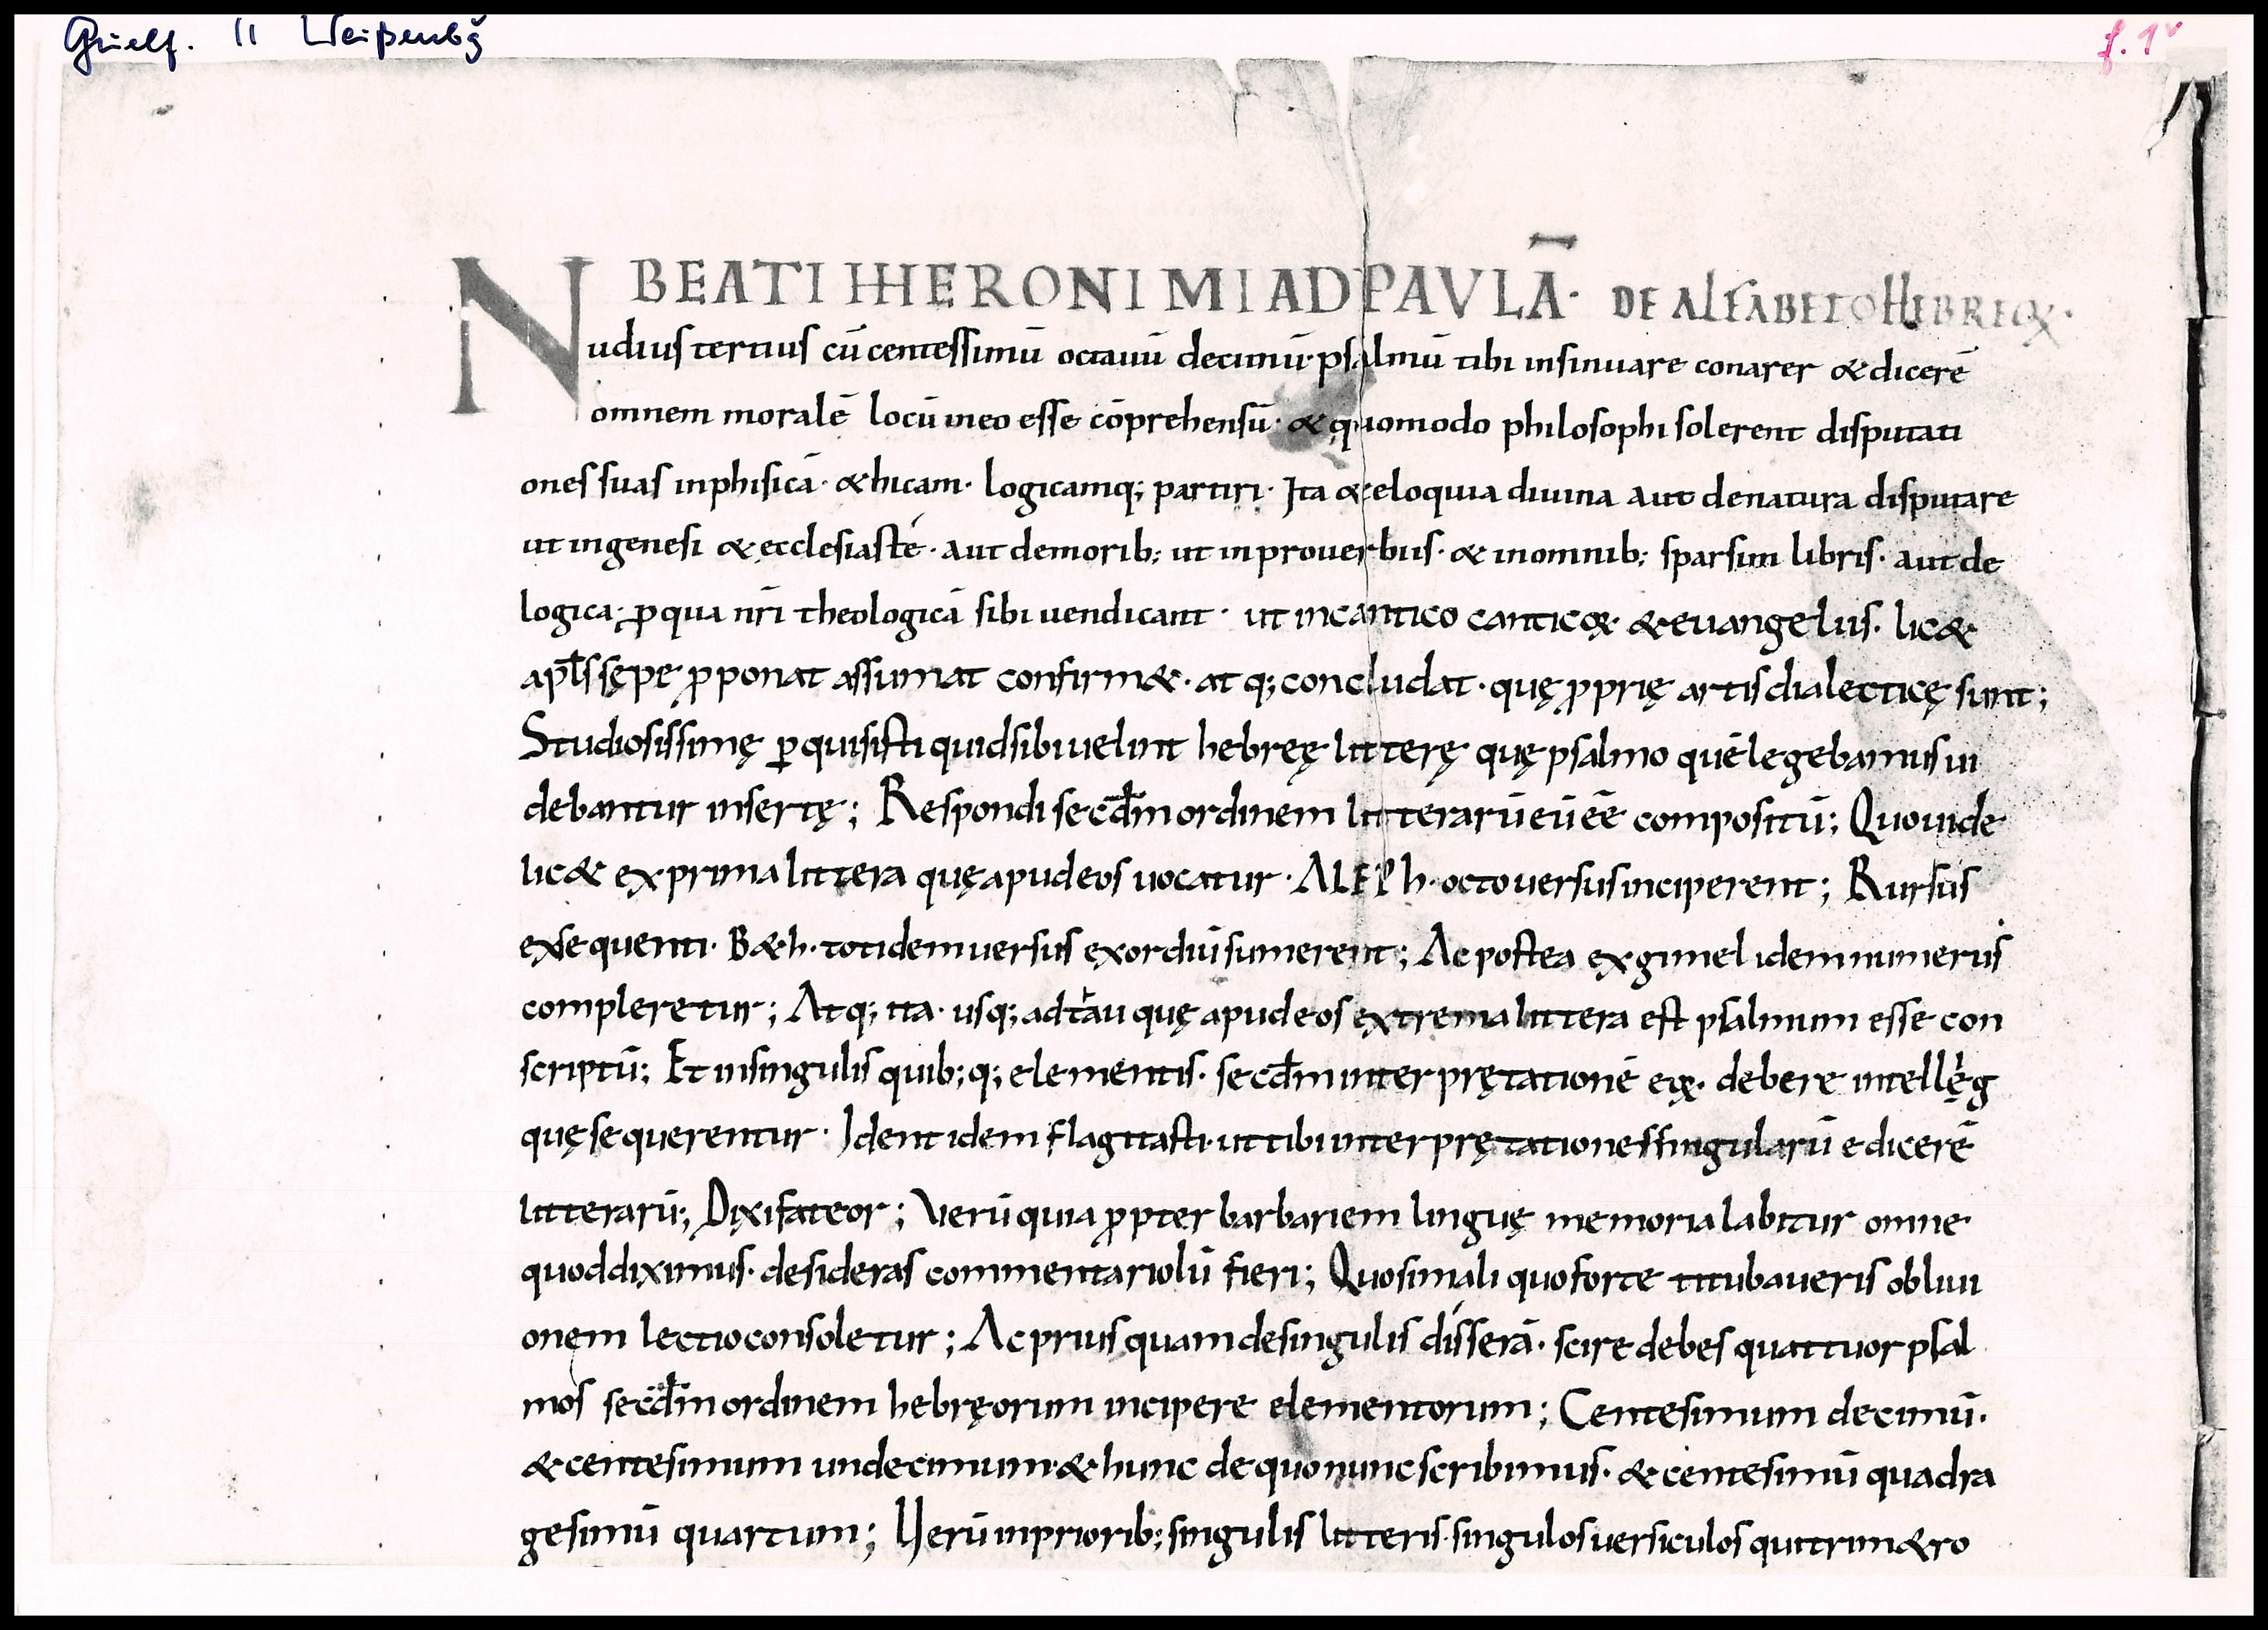 Guelf. 11 Weißenbg
f. 1v
BEATI HHERONIMI AD PAVLĀ· DE ALFABETO HEBREOꝜ·
Nudius tertius cū centessimū octauū decimū· psalmū tibi insinuare conarer & dicerē
omnem moralē locū in eo esse cōprehensū· & quomodo philosophi solerent disputati
ones suas in phisicā· &hicam· logicamq; partiri· Ita & eloquia diuina aut de natura disputare
ut in genesi & ecclesiasté· aut de morib; ut in prouerbiis· & in omnib; sparsim libris· aut de
logica· ꝓ qua nr̄i theologicā sibi uendicant· ut in cantico canticoꝝ & euangeliis· lic&
apl̄s sępe ꝓponat assumat confirm&· atq; concludat· quę ꝓprię artis dialecticę sunt;
Studiosissimę ꝑquisisti quid sibi uelint hebreę litterę quę psalmo quē legebamus ui
debantur insertę; Respondi secd̄m ordinem litterarū eū eē compositū; Quo uide
lic& ex prima littera quę apud eos uocatur· ALEPh· octo uersus inciperent; Rursus
ex sequenti· B&h· totidem uersus exordiū sumerent; Ac postea ex gimel idem numerus
compleretur; Atq; ita· usq; ad tau quę apud eos extrema littera est psalmum esse con
scriptū; Et in singulis quib;q; elementis· secd̄m interprętationē eꝝ· debere intellęg
quę sequerentur· Identidem flagitasti· ut tibi interprętationes singularū edicerē
litterarū; Dixi fateor; Verū quia ꝓpter barbariem linguę memoria labitur omne
quod diximus· desideras commentariolū fieri; Quo si in aliquo forte titubaueris obliui
onem lectio consoletur; Ac prius quam de singulis disserā· scire debes quattuor psal
mos secd̄m ordinem hebręorum incipere elementorum; Centesimum decimū·
& centesimum undecimum· & hunc de quo nunc scribimus· & centesimū quadra
gesimū quartum; Uerū in priorib; singulis litteris· singulos uersiculos qui trim&ro